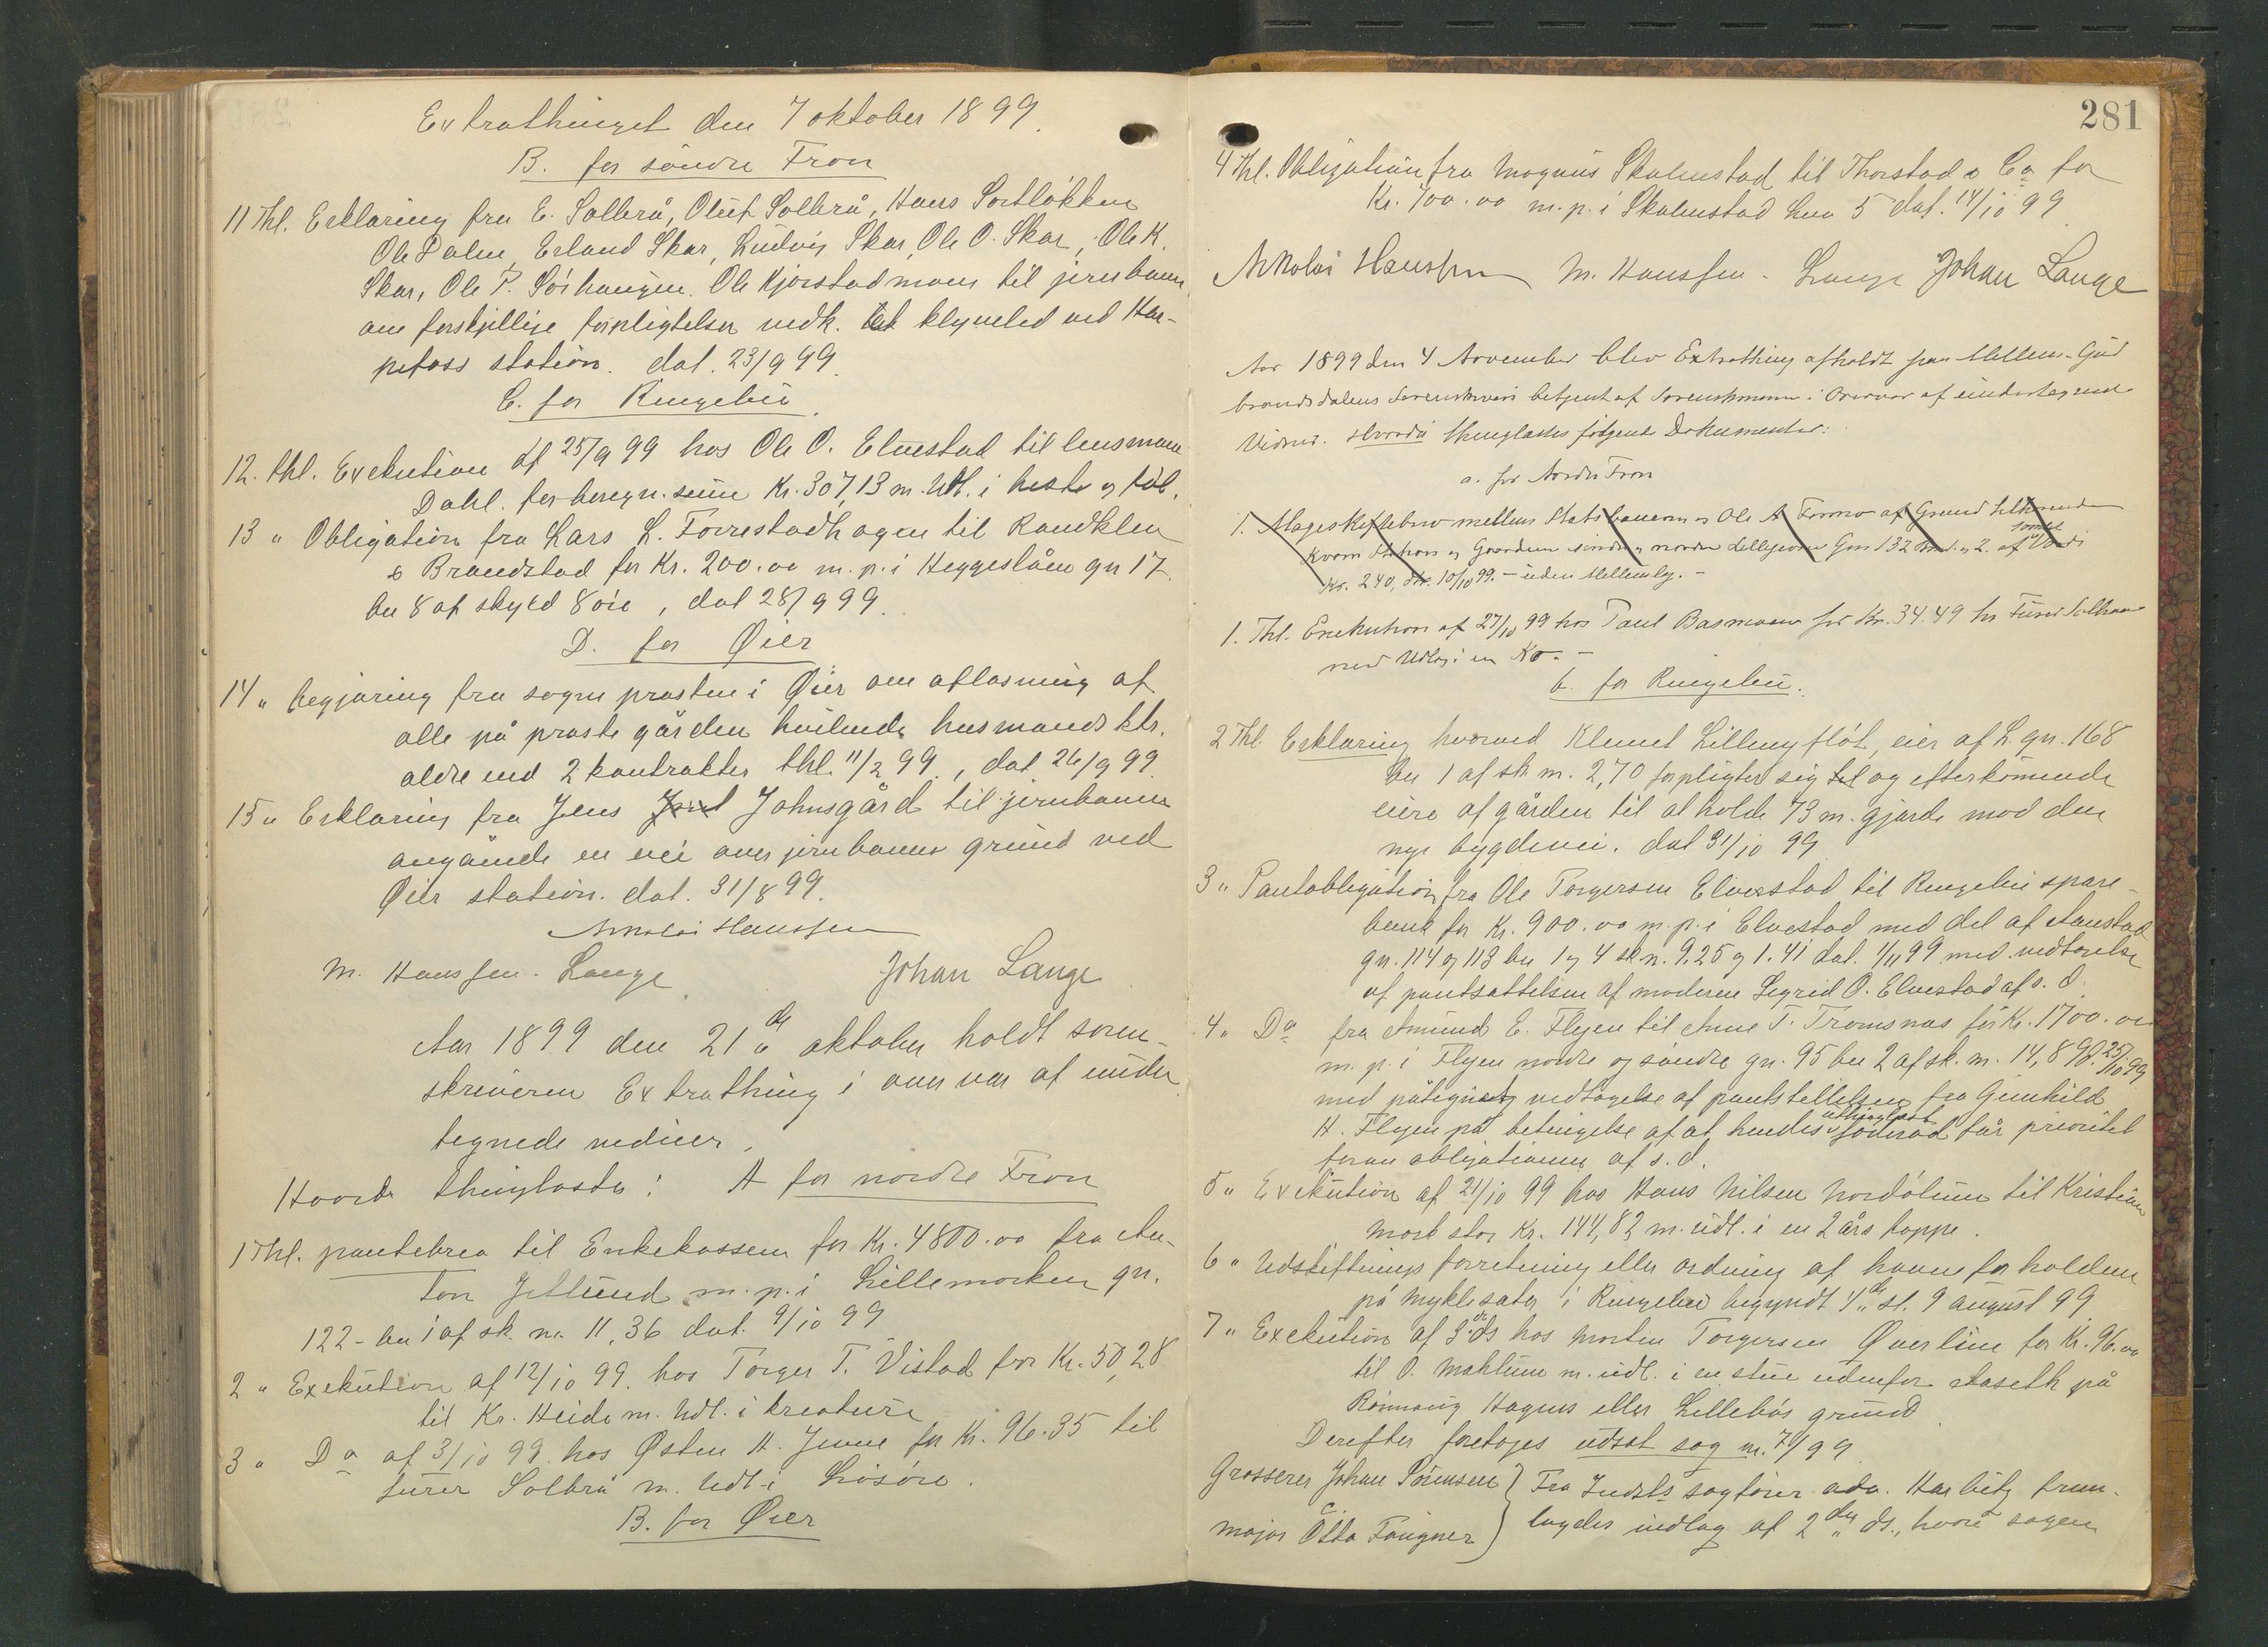 Extrathinget den 7 oktober 1899.
B. for søndre Fron
11 Thl. Erklæring fra E. Solbrå, Oluf Solbrå, Hans Sortløkken
Ole Dalen, Erland Skar, Ludvig Skar, Ole O. Skar, Ole K.
Skar, Ole P. Sørhaugen. Ole Kjorstadmoen til jernbanen
om forskjellige forpligtelser vedk. klyveled ved Har-
pefoss station. dat. 23/9 99.
C. for Ringebu.
12. thl. Exekution af 25/9 99 hos Ole O. Elvestad til lensmann
Dahl. for beregn. sum Kr. 307,13 m. Udl. i heste og føl.
13 " Obligation fra Lars L. Forrestadhagen til Randklev
& Brandstad for Kr. 200.00 m. p. i Heggeslåen gn 17.
bn 8 af skyld 8 øre, dat 28/9 99.
D. for Øier
14 " begjæring fra sogne præsten i Øier om aflæsning af
alle på præste gården hvilende husmands ktr.
ældre end 2 kontrakter thl. 11/2 99, dat 26/9 99.
15 " Erklæring fra Jens Johnsgård til jernbanen
angående en vei over jernbanens grund ved
Øier station. dat. 31/8 99.
Nikolai Hanssen
M. Hanssen. Lange Johan Lange
Aar 1899 den 21 de oktober holdt soren-
skriveren Extrathing i overvær af under
tegnede vidner.
Hvorda thinglæstes: A for nordre Fron
1 Thl. pantebrev til Enkekassen for Kr. 4800.00 fra An-
ton Jetlund m. p. i Lillemorken gn.
122 - bn 1 af sk. m. 11,36 dat. 9/10 99
2 " Exekution af 12/10 99. hos Torger T. Vistad for Kr. 50,28
til Kr. Heide m. Udl. i kreature
3 " Do af 3/10 99. hos Østen H. Jevne for Kr. 96.35 til
furer Solbrå m. Udl i Løsøre.
B. for Øier
281
4 Thl. Obligation fra Magnus Skalmstad til Thorstad & Co for
Kr. 700.00 m. p. i Skalmstad bn 5 dat. 14/10 99
Nikolai Hanssen M. Hanssen - Lange Johan Lange
Aar 1899 den 4 November blev Extrathing afholdt paa Mellem-Gud
brandsdalens Sorenskriveri betjent af Sorenskriveren i Overvær af undertegnede
Vidner. Hvorda thinglæstes følgende Dokumenter:
a. for Nordre Fron
1. Mageskiftebrev mellem Statsbanerne og Ole A Formo af Grund tilhørende
Kvam Station og Gaarden søndre og nordre Gno 132 og 2. af Værdi
Kr. 240, dat. 10/10 99. - uden Mellemlag. -
1. Thl. Exekution af 27/10 99 hos Paul Basmoen for Kr. 34.49 til Furer Solbraa
med Udlæg i en Ko. -
b. for Ringebu.
2 Thl. Erklæring hvorved Klemet Lillengfløt, eier af L. gn. 168
bn 1 af sk m. 2,70 forpligter sig og efterkommende
eiere af gården til at holde 73 m. gjærde mod den
nye bygdevei. dat 31/10 99
3 " Pantobligation fra Ole Torgersen Elvestad til Ringebu spare-
bank for Kr. 900.00 m. p. i Elvestad med del af Aanstad
gn. 114 og 113 bn 1 og 4 sk m. 9.25 og 1.41 dat. 1/11 99 med vedtagelse
af pantsættelsen af moderen Sigrid O. Elvestad af s. d.
4 " Do fra Amund E. Flyen til Anne T. Tromsnæs for Kr. 1700.00
m. p. i Flyen nordre og søndre gn. 95 bn 2 af sk. m. 14,89 d. 25/10 99
med påtegnet vedtagelse af pantstillelsen fra Gunhild
H. Flyen på betingelse af at hendes uthinglæst føderåd får prioritet
foran obligationen af s. d.
5 " Exekution af 21/10 99 hos Hans Nilsen Nordølum til Kristian
Mork stor Kr. 144,82 m. udl. i en 2 års hoppe.
6 " Udskiftnings forretning eller ordning af havneforholdene
på Myklesæter i Ringebu begyndt 4 de sl. 9 august 99
7 " Exekution af 3 de ds hos Morten Torgersen Øverlien for Kr. 96.00
til O. Mæhlum m. udl. i en stue udenfor Aaseth på
Rønning Hagens eller Lillebøs grund.
Derefter foretages udsat sag nr. 7/99
Grosserer Johan Sørensen } Fra Indst.s sagfører adv. Harbitz frem-
c.
major Otto Fougner } lagdes indlæg af 2 den ds., hvori sagen